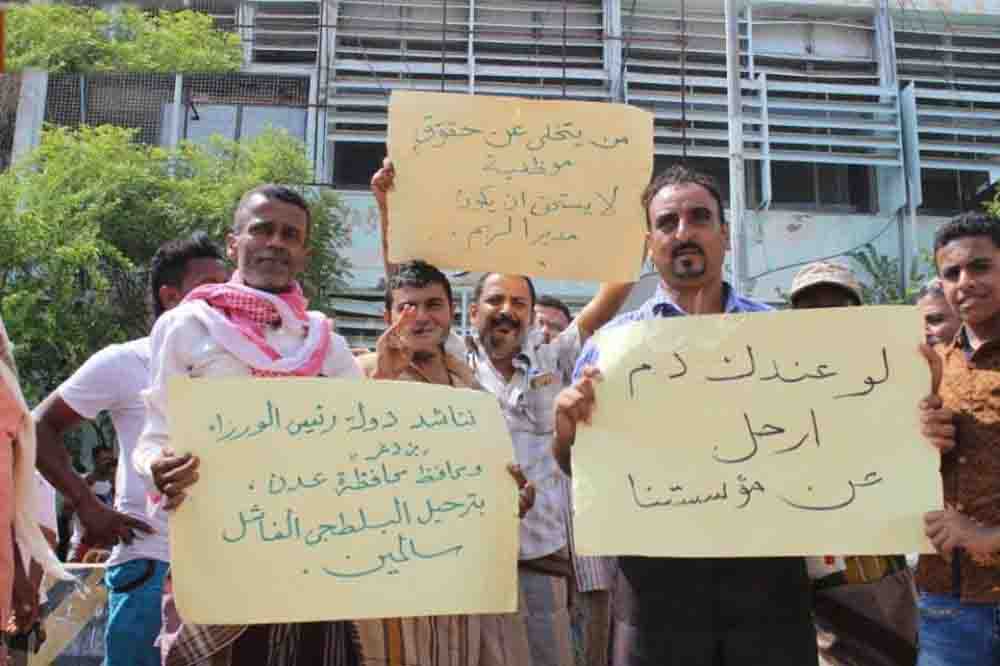 من يتخلى عن حقوق
موظفية
لا يستحق ان يكون
مديرا لهم .
نناشد دولة رئيس الوزراء
"بن دغر"
ومحافظ محافظة عدن .
بترحيل البلطجي الفاشل
سالمين .
لو عندك دم
ارحل
عن مؤسستنا